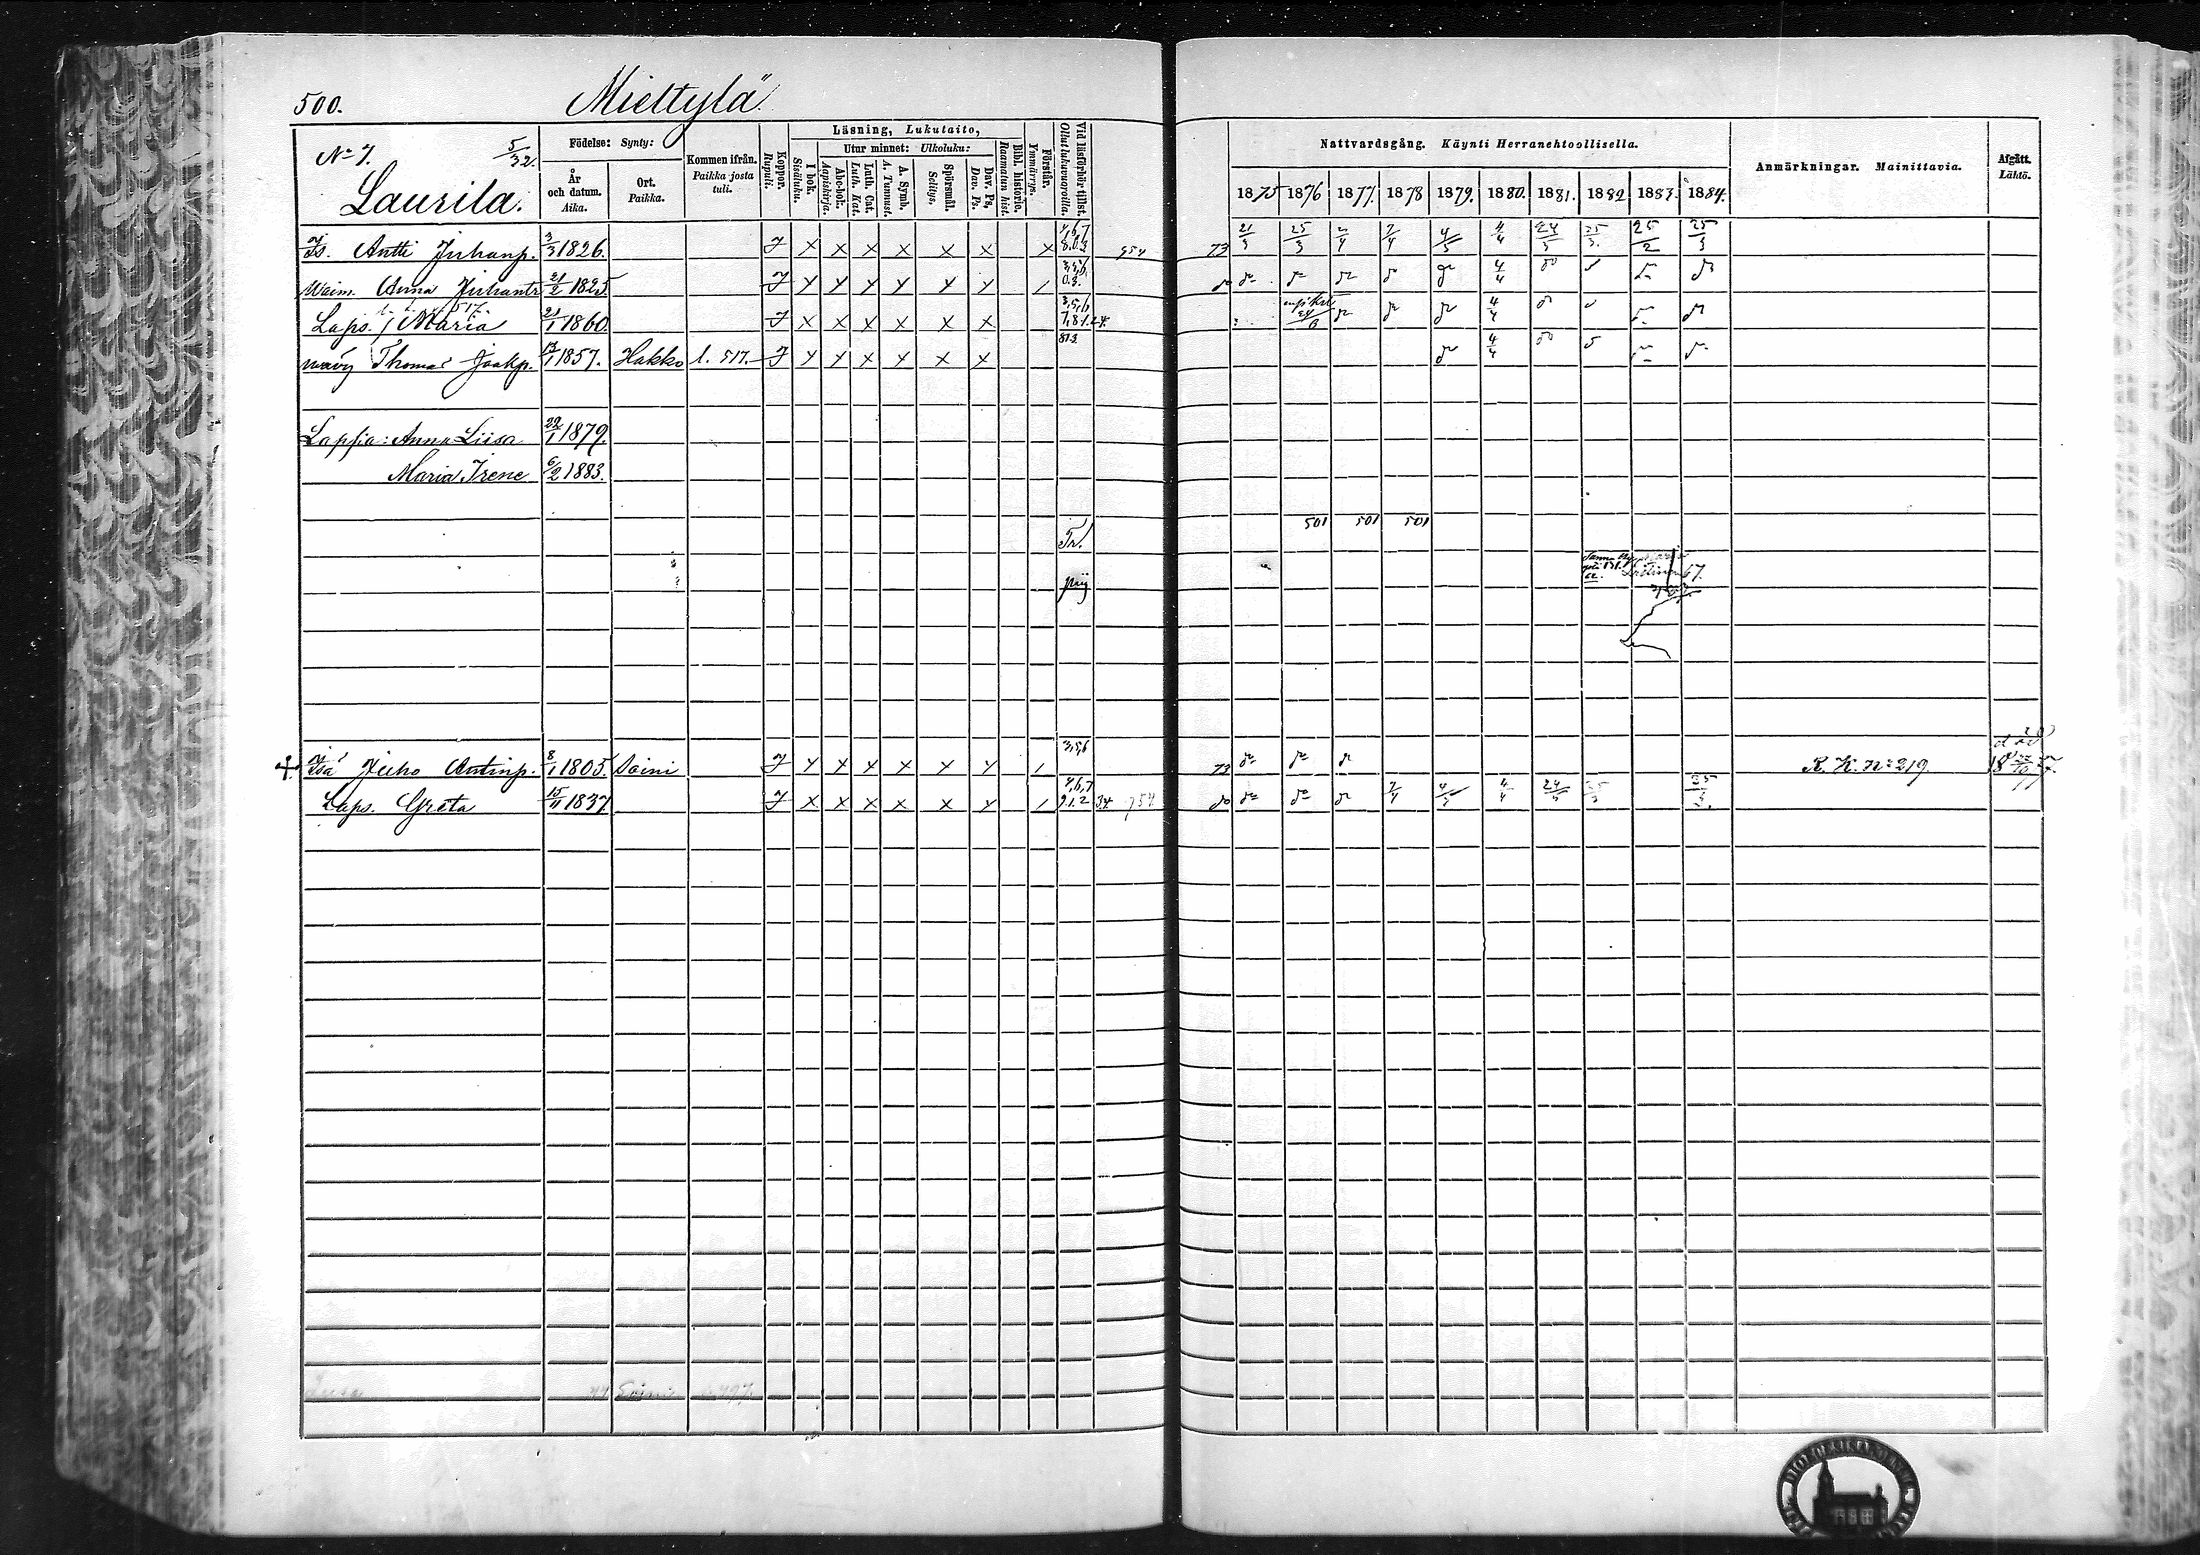 500. Miettylä
No 7. 5/32.
Laurila.
Födelse: Synty:
År och datum. Aika.
Ort. Paikka.
Kommen ifrån. Paikka josta tuli.
Koppor. Rupuli.
Läsning, Lukutaito,
I bok. Sisäluku.
Utur minnet: Ulkoluku:
Abc-bok. Aapiskirja.
Luth. Cat. Luth. Kat.
A. Symb. A. Tunnust.
Spörsmål. Selitys.
Dav. Ps, Dav. Ps.
Bibl. historie. Raamatun hist.
Förstår. Ymmärrys.
Vid läsförhör tillst. Ollut lukuvuoroilla.
Nattvardsgång. Käynti Herranehtoollisella.
1875 1876 1877. 1878 1879. 1880. 1881. 1882 1883. 1884.
Anmärkningar. Mainittavia.
Afgått. Lähtö.
Is. Antti Juhanp. 3/3 1826. J x x x x x x x 954 73 21/3 25/3 7/4 4/5 4/4 24/3 25/3. 25/2 25/3
Waim. Anna Juhantr 1825 J 4/4
517.
Laps. Maria 21/1 1860. J x x x x x x 4/4
wävy Thomas Joakp. 13/1 1857. Hakko l. 517. J x x x x x x 4/4
Lapsia: Anna Liisa 29/1 1879.
Maria Irene 6/2 1883.
501 501 501
Tr.
Isä Juho Antinp. 8/1 1805. Soini J x x x x x x 3,5,6 73 R. K. No 219.
Laps. Greta 15/11 1837 J x x x x x x 4,6,7 9.1.2 3.4. 754 7/4 4/4 24/3